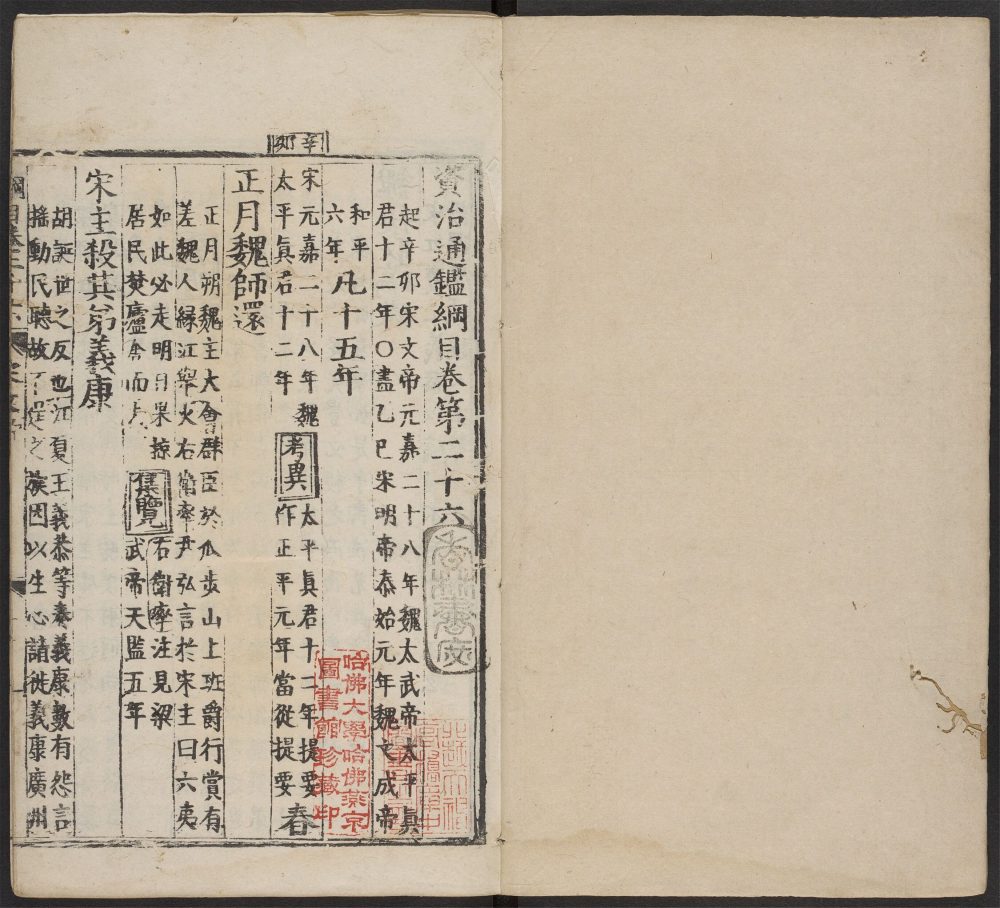 資治通鑑綱目卷第二十六
起辛卯宋文帝元嘉二十八年魏太武帝太平真
君十二年〇盡乙巳宋明帝泰始元年魏文成帝
和平
六年
凡十五年
辛卯
宋元嘉二十八年魏
太平真君十二年
考異
太平真君十二年提要
作正平元年當從提要
春
正月魏師還
正月朔魏主大會群臣於瓜步山上班爵行賞有
差魏人緣江舉火右衛率尹弘言於宋主曰六夷
如此必走明日果掠
居民焚廬舍而去
集覽
右衛率注見梁
武帝天監五年
宋主殺其弟義康
胡誕世之反也江夏王義恭等奏義康數有怨言
搖動民聽故不逞之族因以生心請徙義康廣州
哈佛大學哈佛燕京
圖書館珍藏印